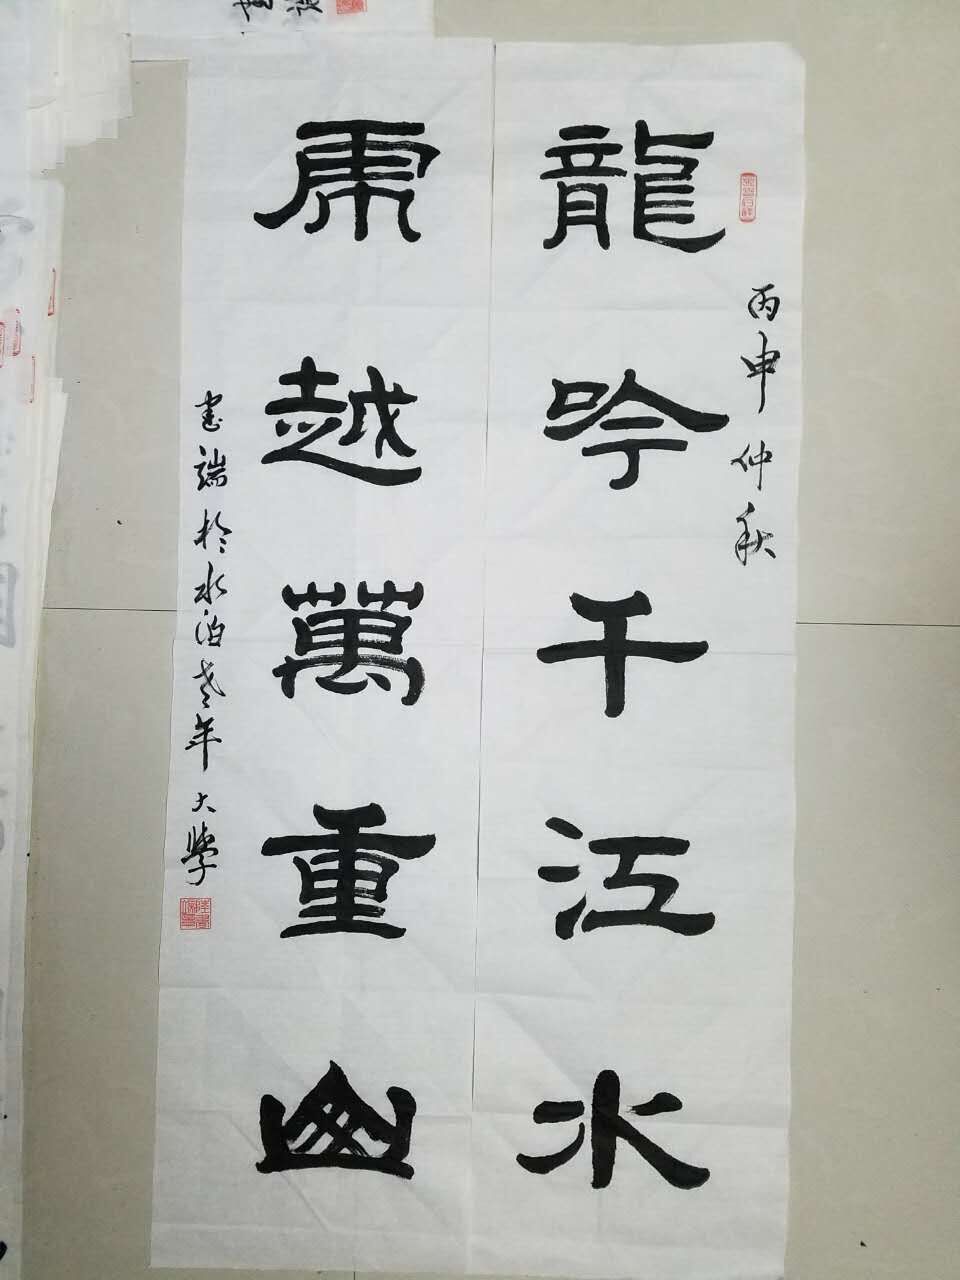 丙申仲秋
龍吟千江水
虎越萬重山
書端於水泊老年大學